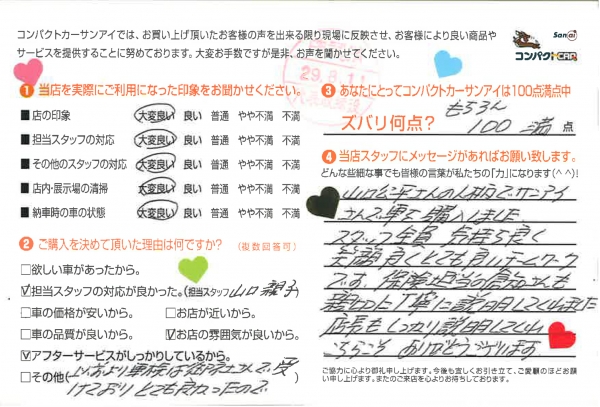 コンパクトカーサンアイでは、お買い上げ頂いたお客様の声を出来る限り現場に反映させ、お客様により良い商品や
サービスを提供することに努めております。大変お手数ですが是非、お声を聞かせてください。
Sanai
コンパクトCAR
29.8.11
❶ 当店を実際にご利用になった印象をお聞かせください。
■ 店の印象 大変良い 良い 普通 やや不満 不満
■ 担当スタッフの対応 大変良い 良い 普通 やや不満 不満
■ その他のスタッフの対応 大変良い 良い 普通 やや不満 不満
■ 店内・展示場の清掃 大変良い 良い 普通 やや不満 不満
■ 納車時の車の状態 大変良い 良い 普通 やや不満 不満
❷ ご購入を決めて頂いた理由は何ですか? (複数回答可)
□欲しい車があったから。
☑担当スタッフの対応が良かった。(担当スタッフ 山口 親子)
□車の価格が安いから。 □お店が近いから。
□車の品質が良いから。 ☑お店の雰囲気が良いから。
☑アフターサービスがしっかりしているから。
□その他( 以前より車検は御店さんで受
けており とても良かったので
❸ あなたにとってコンパクトカーサンアイは100点満点中
ズバリ何点? もちろん 100 満 点
❹ 当店スタッフにメッセージがあればお願い致します。
どんな些細な事でも皆様の言葉が私たちの「力」になります(^^)!
山口店長さんの人柄でサンアイ
さんで車を購入しました
スタッフ全員 気持ち良く
笑顔良くとても良いチームワーク
です。保険担当の高知さんも
親切に丁寧に説明してくれました
店長も しっかり説明してくれ
こちらこそ ありがとうございます
ご協力に心より御礼申し上げます。今後も宜しくお引き立て、ご愛顧のほどお願
い申し上げます。またのご来店を心よりお待ちしております。